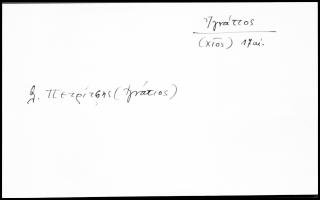 Ἰγνάτιος
(Χίος) 17 αἰ.
βλ. Πετρίτσης (Ἰγνάτιος)